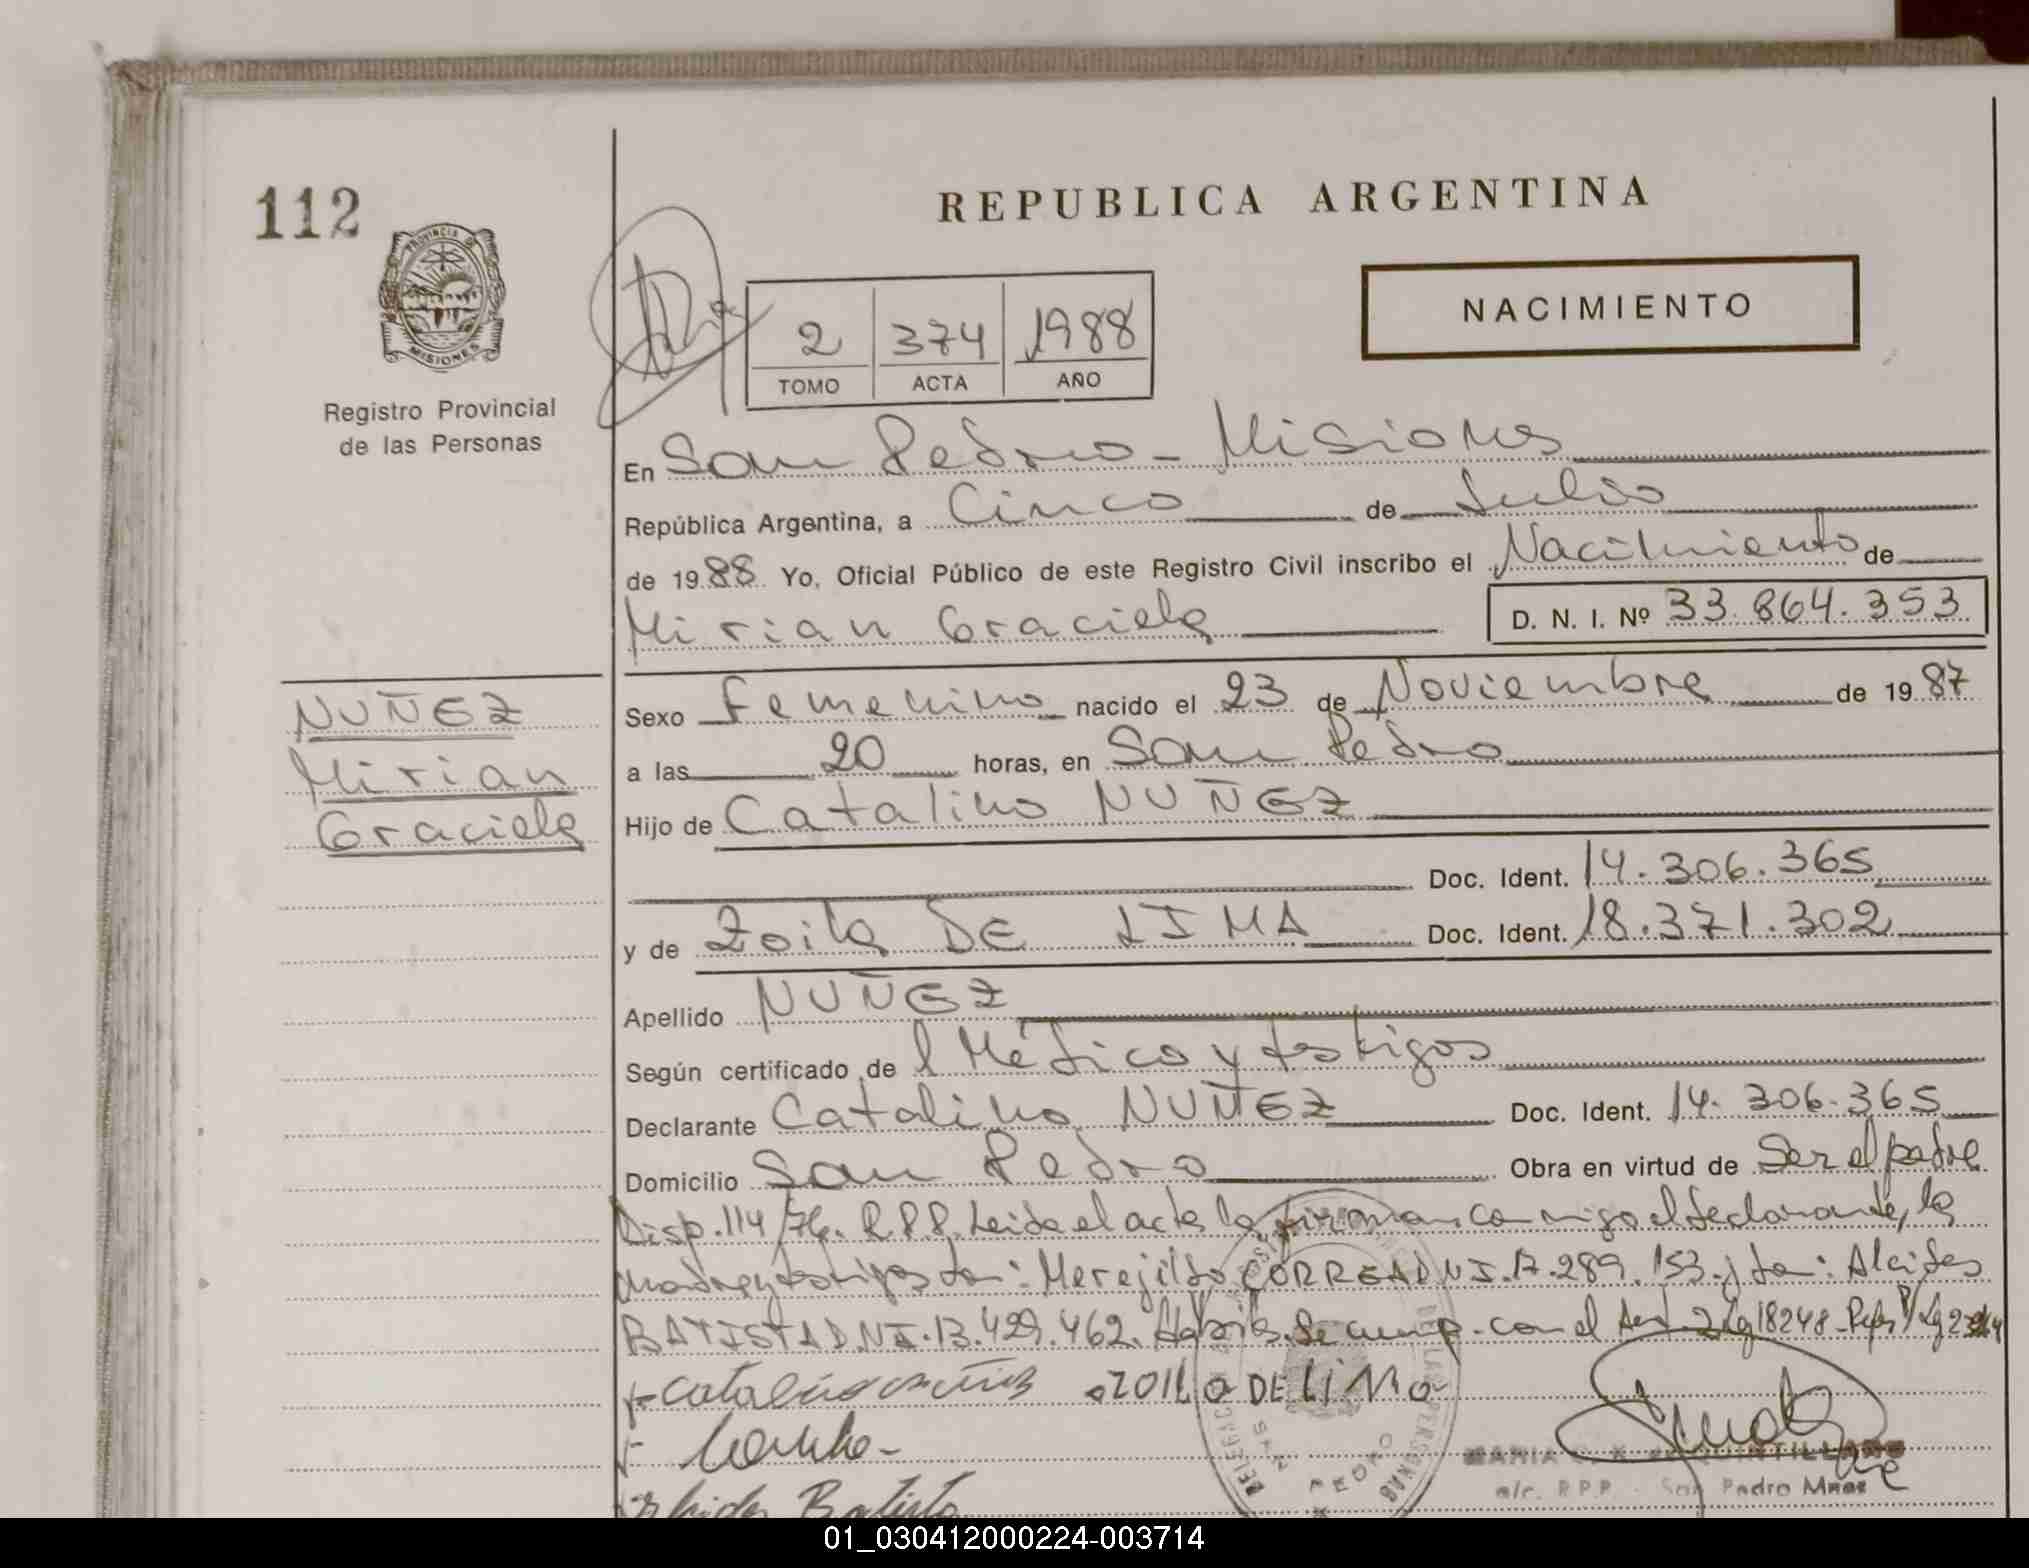 112
REPUBLICA ARGENTINA
PROVINCIA DE
MISIONES
NACIMIENTO
2 374 1988
TOMO ACTA AÑO
Registro Provincial
de las Personas
En San Pedro - Misiones
República Argentina, a Cinco de Julio
de 1988 Yo, Oficial Público de este Registro Civil inscribo el Nacimiento de
Mirian Graciela D. N. I. Nº 33.864.353
NUÑEZ
Mirian
Graciela
Sexo Femenino nacido el 23 de Noviembre de 1987
a las 20 horas, en San Pedro
Hijo de Catalino NUÑEZ
Doc. Ident. 14.306.365
y de Zoila DE LIMA Doc. Ident. 18.371.302
Apellido NUÑEZ
Según certificado de l Médico y testigos
Declarante Catalino NUÑEZ Doc. Ident. 14.306.365
Domicilio San Pedro Obra en virtud de Ser el padre
Disp. 114/76. R.P.P. Leida el acta la firman conmigo el declarante, la
madre y testigos Don: Merejildo CORREA DNI. 17.289.153. y Don: Alcides
BATISTA DNI. 13.429.462. Se cump. con el Art. 2 Lg 18248
Catalino nuñez ZOILA DE LIMA
MARIA QUINTILLANO
a/c. R.P.P. - San Pedro Mnes
Alcides Batista
SAN PEDRO
01_030412000224-003714